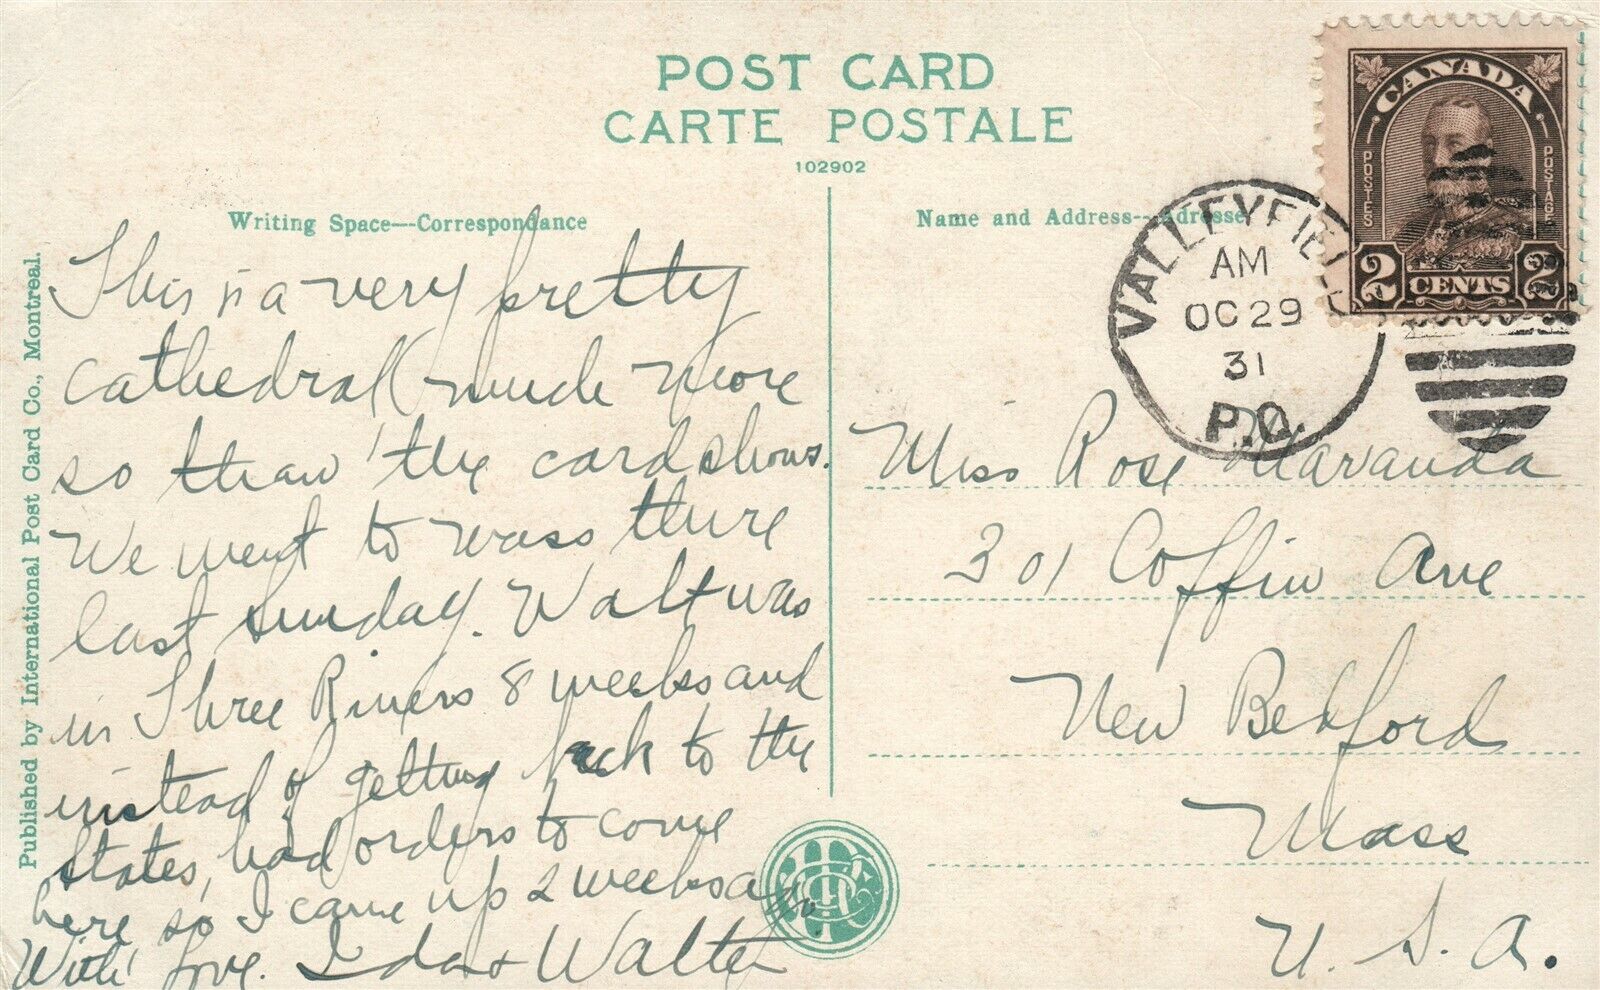 POST CARD
CARTE POSTALE
102902
Writing Space--Correspondance
Name and Address--Adresse
Published by International Post Card Co., Montreal.
CANADA
POSTES
POSTAGE
2 CENTS 2
VALLEYFIELD
AM
OC 29
31
P.Q.
This is a very pretty
cathedral, much more
so than the card shows.
We went to mass there
last Sunday. Walt was
in Three Rivers 8 weeks and
instead of getting back to the
States, had orders to come
here so I came up 2 weeks ago.
With love. Ida & Walter
Miss Rose Maranda
301 Coffin Ave
New Bedford
Mass
U. S. A.